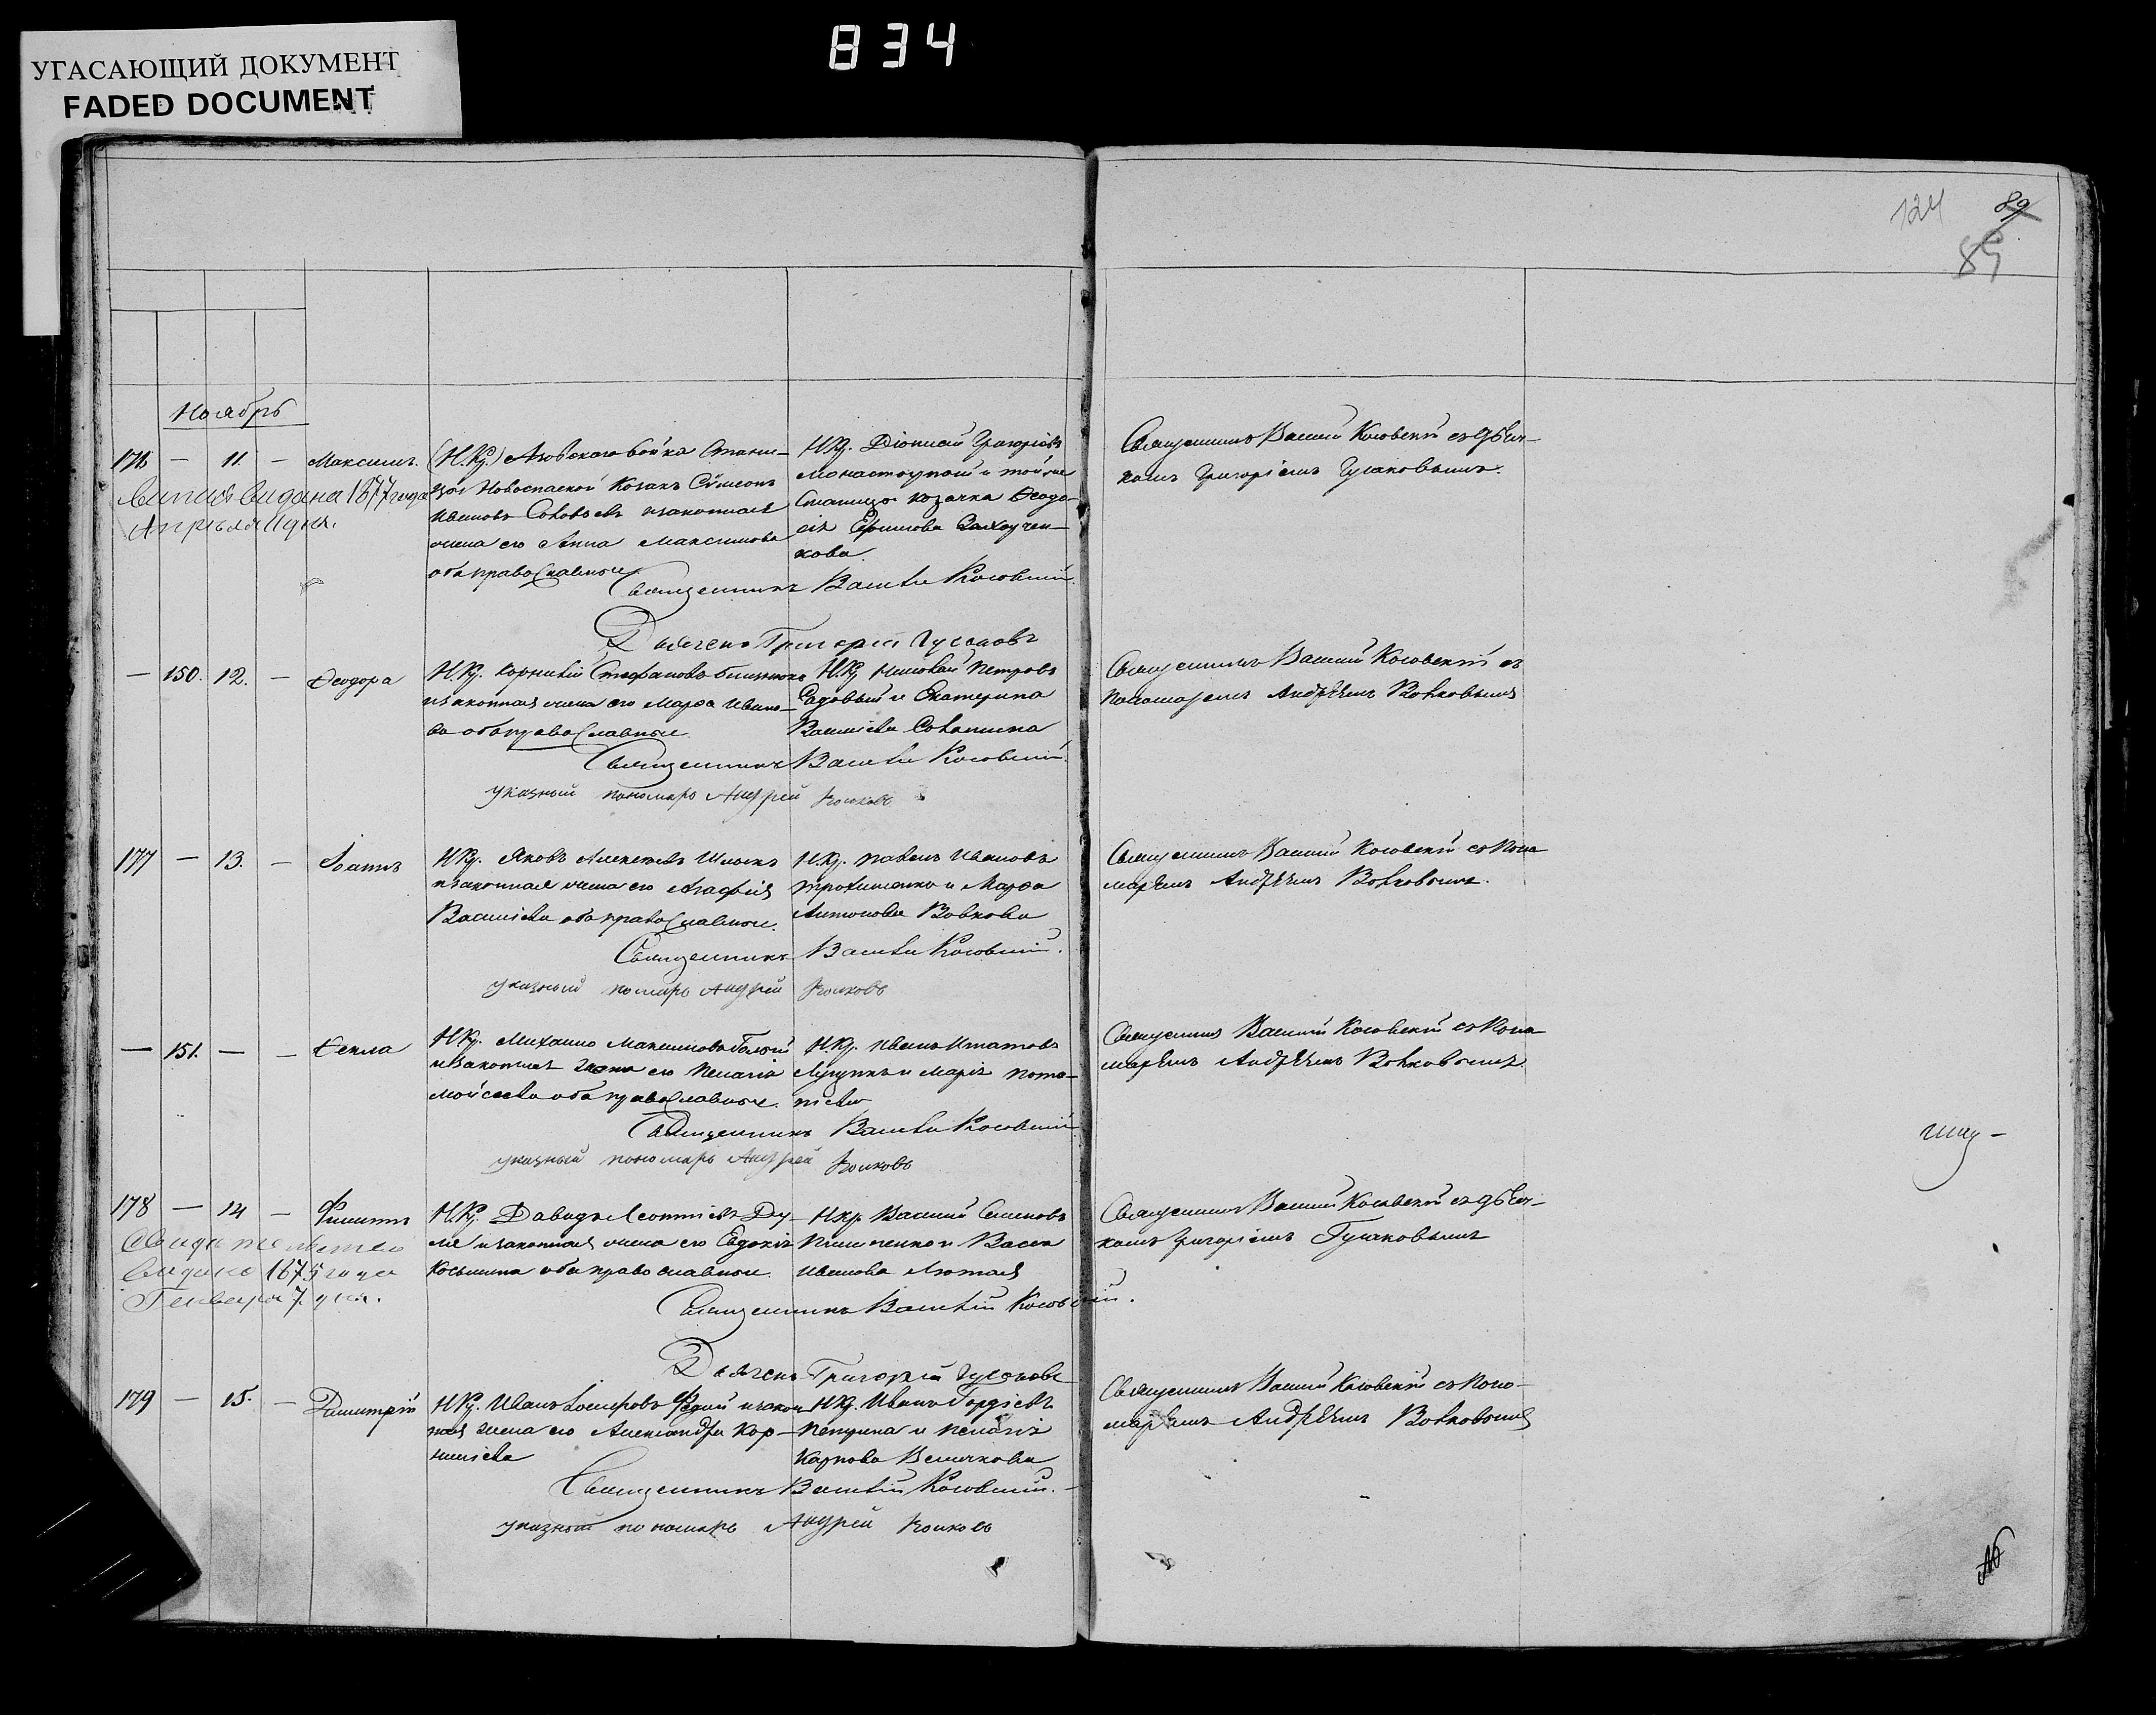 834
УГАСАЮЩИЙ ДОКУМЕНТ
FADED DOCUMENT
124 89
89
Ноябрь
176 — 11. — Максимъ.
(Н.Кр.) Азовскаго войска Стани-
цы Новоспаской Козакъ Сѵмеонъ
Ивановъ изаконная
жена его Анна Максимова
оба православные
Н.Кр. Діонисій Григорьевъ
и той же
Станицы козачка Ѳеодо-
кова
Священникъ Василій Косовскій съ дьяч-
комъ Григоріемъ Гусаковымъ.
выдана 1877 года
Апрѣля 11 дня.
Священникъ Василій Косовскій.
Дьячекъ Григорій Гусаковъ
— 150. 12. — Ѳеодора
Н.Кр. Корнилій Стефановъ
изаконная жена его Марѳа Ивано-
ва оба православные
Н.Кр. Петровъ
Садовый и Екатерина
Василіева
Священникъ Василій Косовскій съ
пономаремъ Андрѣемъ Вовковымъ
Священникъ Василій Косовскій.
указный пономарь Андрей Волковъ
177 — 13. — Іоаннъ
Н.Кр. Яковъ Алексѣевъ
изаконная жена его Агафія
Василіева оба православные.
Н.Кр. Павелъ Ивановъ
Трофименко и Марѳа
Антонова Вовкова
Священникъ Василій Косовскій съ Поно
маремъ Андрѣемъ Вовковымъ.
Священникъ Василій Косовскій.
указный помарь Андрей Волковъ
— 151. — — Ѳекла
Н.Кр. Михаилъ Максимовъ Голый
изаконная жена его Пелагія
Мойсеева оба православные.
Н.Кр. Иванъ Игнатовъ
и Марія Пота-
піева
Священникъ Василій Косовскій съ Поно
маремъ Андрѣемъ Вовковымъ.
Священникъ Василій Косовскій
указный пономарь Андрей Волковъ
178 — 14 — Филиппъ
Н.Кр. Давидъ Леонтіевъ Ду-
ля изаконная жена его Евдокія
Косьмина оба православные.
Н.Кр. Василій Семеновъ
и Васса
Иванова Лютая
Священникъ Василій Косовскій съ дьяч-
комъ Григоріемъ Гусаковымъ
Свидѣтельство
выдано 1875 года
Генваря 7. дня.
Священникъ Василій Косовскій.
Дьячекъ Григорій Гусаковъ
179 — 15. — Димитрій
Н.Кр. Иванъ изакон
ная жена его Александра Кор-
ниліева
Н.Кр. Иванъ Гордіевъ
и Пелагія
Карпова Величкова
Священникъ Василій Косовскій съ Поно-
маремъ Андрѣемъ Вовковымъ
Священникъ Василій Косовскій.
указный пономарь Андрей Волковъ